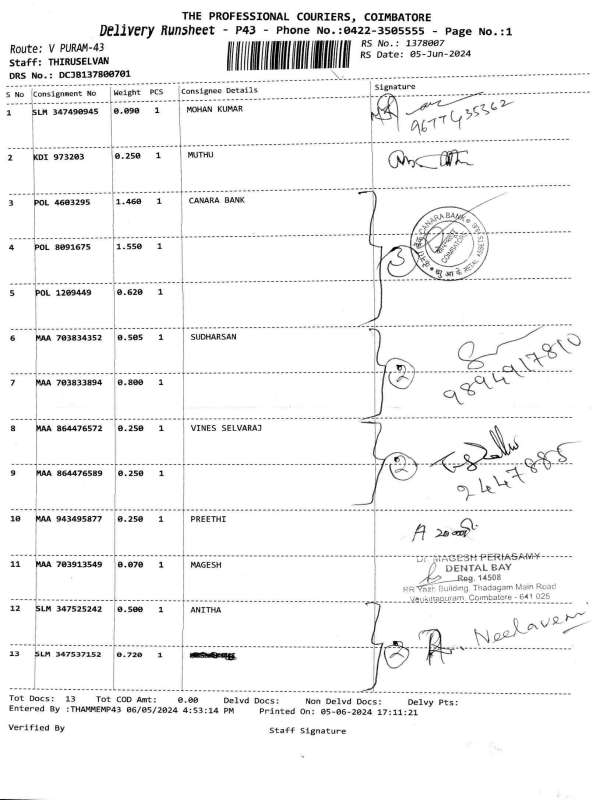 THE PROFESSIONAL COURIERS, COIMBATORE
Delivery Runsheet - P43 - Phone No.:0422-3505555 - Page No.:1
Route: V PURAM-43
RS No.: 1378007
Staff: THIRUSELVAN
RS Date: 05-Jun-2024
DRS No.: DCJB137800701
S No Consignment No Weight PCS Consignee Details Signature
1 SLM 347490945 0.090 1 MOHAN KUMAR
9677435362
2 KDI 973203 0.250 1 MUTHU
3 POL 4603295 1.460 1 CANARA BANK
CANARA BANK
COIMBATORE
4 POL 8091675 1.550 1 3
5 POL 1209449 0.620 1
6 MAA 703834352 0.505 1 SUDHARSAN
2 9894917810
7 MAA 703833894 0.800 1
8 MAA 864476572 0.250 1 VINES SELVARAJ
2 2447885
9 MAA 864476589 0.250 1
10 MAA 943495877 0.250 1 PREETHI
11 MAA 703913549 0.070 1 MAGESH
Dr. MAGESH PERIASAMY
DENTAL BAY
Reg. 14508
Building, Thadagam Main Road
Coimbatore - 641 025
12 SLM 347525242 0.500 1 ANITHA
2 Neelaveni
13 SLM 347537152 0.720 1
Tot Docs: 13 Tot COD Amt: 0.00 Delvd Docs: Non Delvd Docs: Delvy Pts:
Entered By :THAMMEMP43 06/05/2024 4:53:14 PM Printed On: 05-06-2024 17:11:21
Verified By Staff Signature